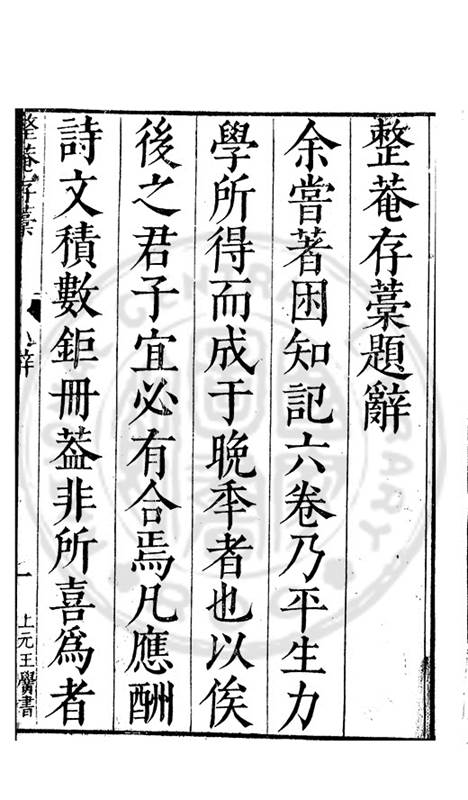 整菴存藁題辭
余嘗著困知記六卷乃平生力
學所得而成于晚秊者也以俟
後之君子宜必有合焉凡應酬
詩文積數鉅冊葢非所喜爲者
整菴存藁
辭
一
上元王㕔書